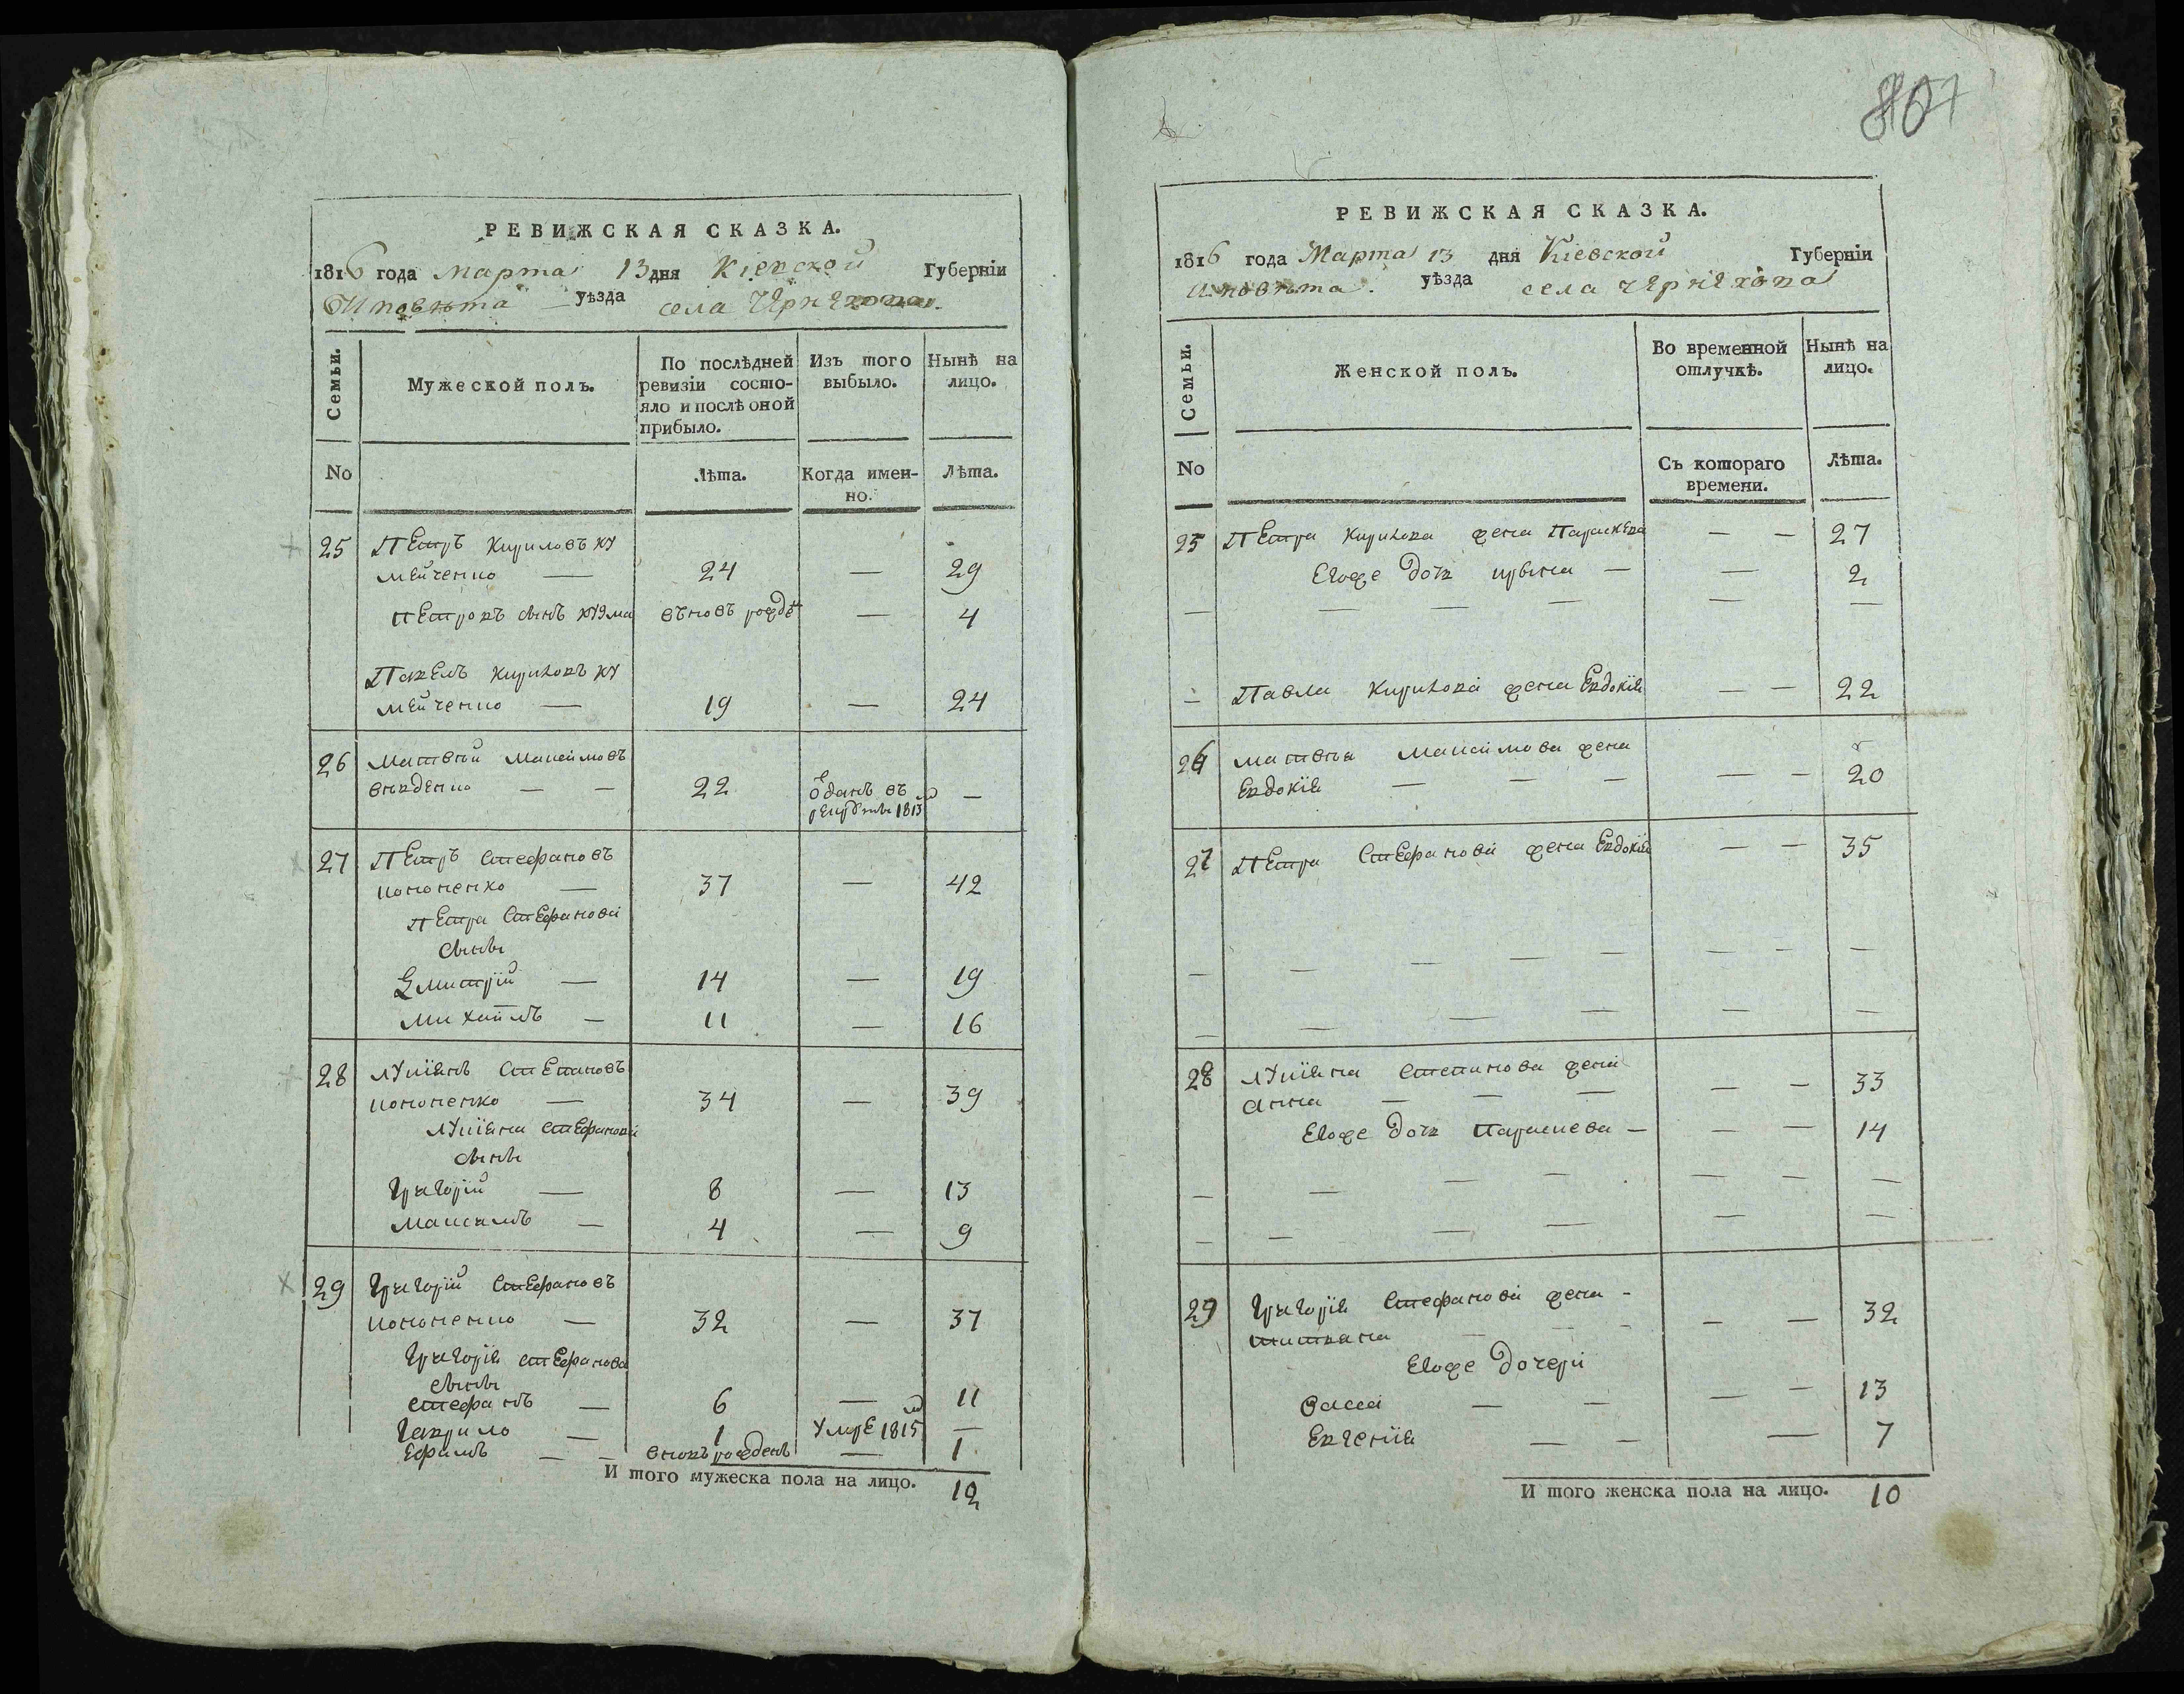 РЕВИЖСКАЯ СКАЗКА.
1816 года Марта 13 дня Кіевской Губерніи
И повѣта уѣзда села Чернехова.
Семьи.
Мужеской полъ.
По послѣдней ревизіи состо-
яло и послѣ оной прибыло.
Изъ того выбыло.
Нынѣ на лицо.
No
Лѣта.
Когда имен-
но.
Лѣта.
25 Петръ Кириловъ Ку
мейченко — 24 — 29
Петровъ сынъ Кузма вновъ рожде — 4
Павелъ Кириловъ Ку
мейченко — 19 — 24
26 Матвѣй Максимовъ
— — 22 оданъ въ рекруты 1813 —
27 Петръ Стефановъ
Кононенко — 37 — 42
Петра Стефанова
сыны
Дмитрій — 14 — 19
Михаилъ — 11 — 16
28 Лукіянъ Степановъ
Кононенко — 34 — 39
Лукіяна Стефанова
сыны
Григорій — 8 — 13
— 4 — 9
29 Григорій Стефановъ
Кононенко — 32 — 37
Григорія Стефанова
сыны
Стефанъ — 6 — 11
Гаврило — 1 Умре 1815 —
Ефимъ — — вновъ рожденъ — 1
И того мужеска пола на лицо. 12
807
РЕВИЖСКАЯ СКАЗКА.
1816 года Марта 13 дня Кіевской Губерніи
И повѣта. уѣзда села Чернехова
Семьи.
Женской полъ.
Во временной отлучкѣ.
Нынѣ на лицо.
No
Съ котораго времени.
Лѣта.
25 Петра Кирилова жена Параскева — — 27
Егоже дочь Ирина — — 2
— — — — — —
— Павла Кирилова жена Евдокія — — 22
26 Матвѣя Максимова жена
Евдокія — — — — — 20
27 Петра Стефанова жена Евдокія — — 35
— — — — — — — —
— — — — — —
28 Лукіяна Степанова жена
Анна — — — — — 33
Егоже дочь Параскева — — — 14
— — — — — — —
— — — — — —
29 Григорія Стефанова жена -
Татіана — — - — — 32
Егоже дочери
Васса — — — — 13
Евгенія — — — 7
И того женска пола на лицо. 10